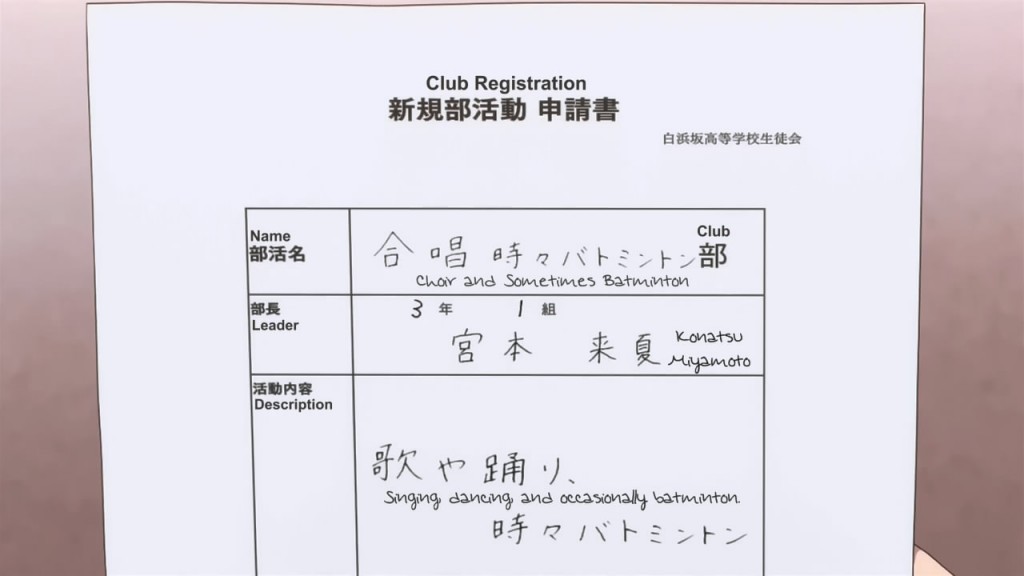 Club Registration
新規部活動 申請書
白浜坂高等学校生徒会
Name
部活名
Club
合唱 時々バトミントン部
Choir and Sometimes Batminton
部長
Leader
3年 1組
宮本 来夏
Konatsu
Miyamoto
活動内容
Description
歌や踊り、
Singing, dancing, and occasionally batminton.
時々バトミントン